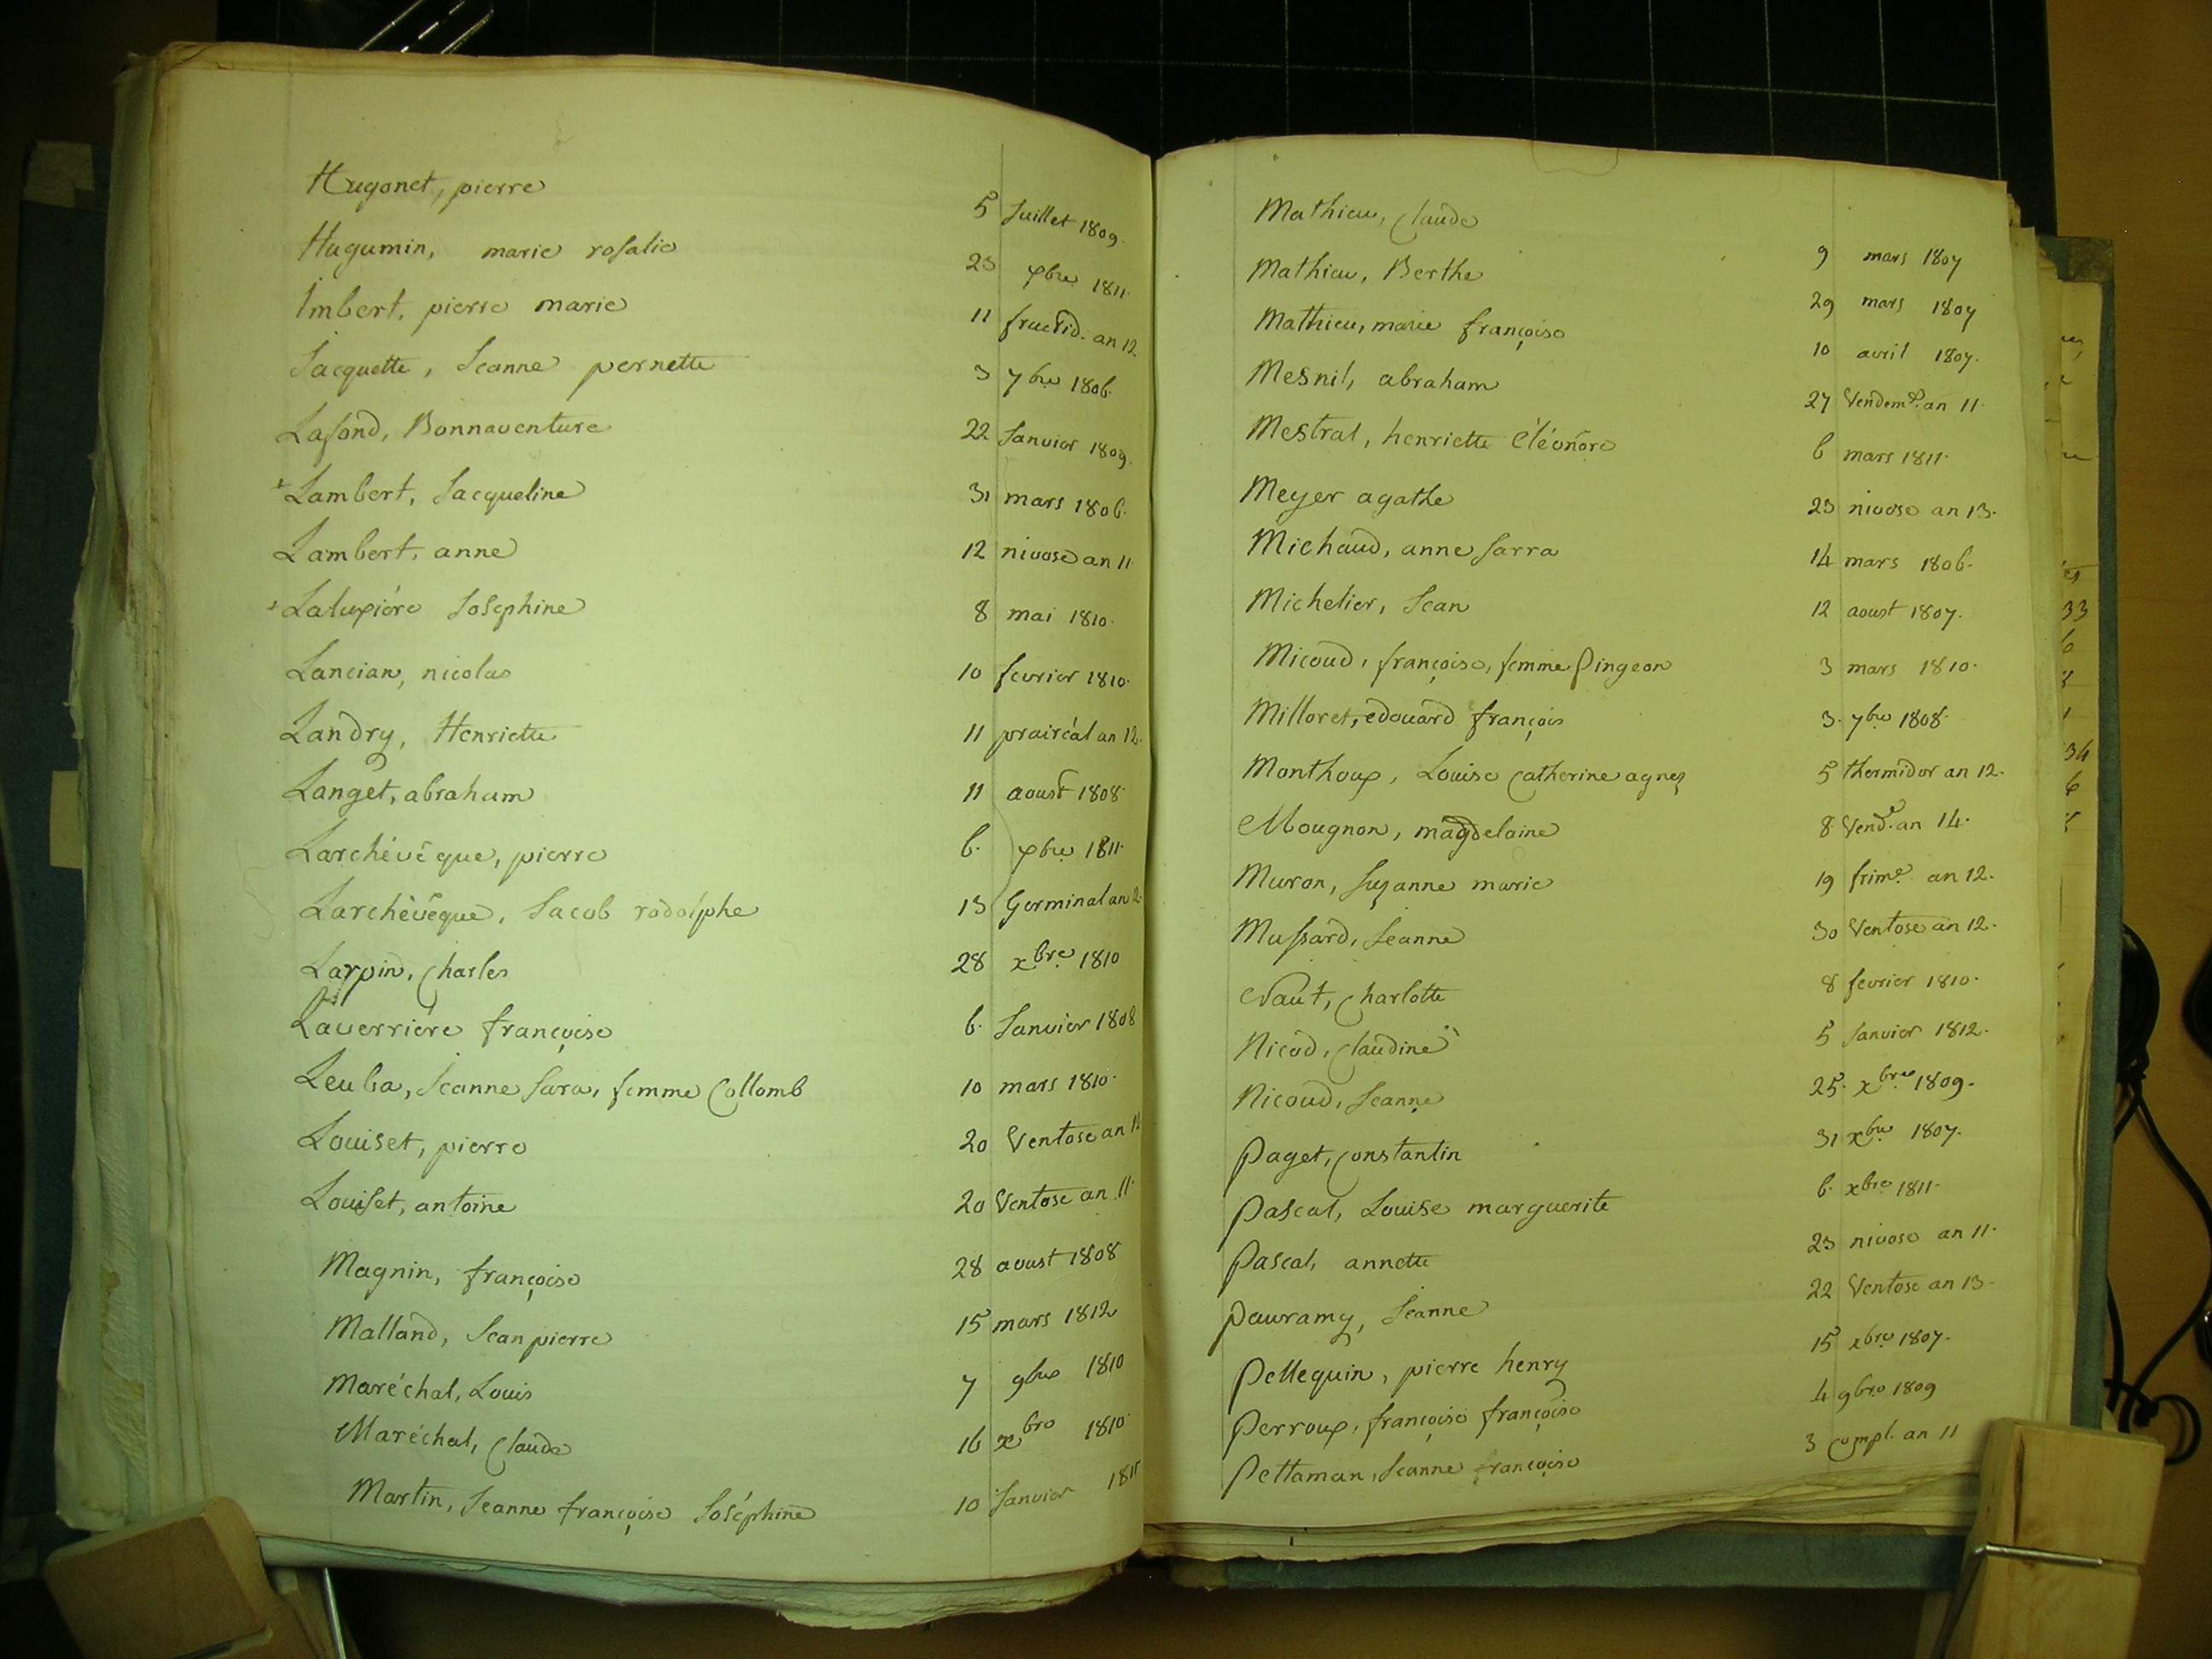 Hugonet, pierre 5 Juillet 1809.
Hugumin, marie rosalie 23 xbre 1811.
Imbert, pierre marie 11 fructid. an 12
Jacquette, Jeanne pernette 3 7bre 1806.
Lafond, Bonnaventure 22 Janvier 1809.
Lambert, Jacqueline 31 mars 1806.
Lambert, anne 12 nivose an 11
Laluxiére Josephine 8 mai 1810.
Lancian, nicolas 10 fevrier 1810.
Landry, Henriette 11 prairéal an 12.
Langet, abraham 11 aoust 1808.
Larchévêque, pierre 6. xbre 1811.
Larchévêque, Jacob rodolphe 13 Germinal an
Larpin, Charles 28 xbre 1810
Laverriére françoise 6. Janvier 1808
Leuba, Jeanne Sara, femme Collomb 10 mars 1810.
Louiset, pierre 20 Ventose an
Louiset, antoine 20 Ventose an 11.
Magnin, françoise 28 aoust 1808
Malland, Jean pierre 15 mars 1812
Maréchal, Louis 7 9bre 1810
Maréchal, Claude 16 xbre 1810.
Martin, Jeanne françoise Joséphine 10 Janvier 1811
Mathieu, Claude 9 mars 1807
Mathieu, Berthe 29 mars 1807
Mathieu, marie françoise 10 avril 1807.
Mesnil, abraham 27 Vendemre. an 11.
Mestral, henriette éléonore 6 mars 1811.
Meyer agathe 23 nivose an 13.
Michaud, anne Sarra 14 mars 1806.
Michelier, Jean 12 aoust 1807.
Micoud, françoise, femme Pingeon 3 mars 1810.
Milloret, edouard françois 3. 7bre 1808.
Monthoux, Louise Catherine agnez 5 thermidor an 12.
Mougnon, magdelaine 8. Vend.re an 14.
Muron, Suzanne marie 19 frimre. an 12.
Mussard, Jeanne 30 Ventose an 12.
Naut, Charlotte 8 fevrier 1810.
Nicod, Claudine 5 Janvier 1812.
Nicoud, Jeanne 25. xbre 1809.
Paget, Constantin 31 xbre 1807.
Pascal, Louise marguerite 6. xbre 1811.
Pascal, annette 23 nivose an 11.
Pauramy, Jeanne 22 Ventose an 13.
Pelleguin, pierre henry 15 xbre 1807.
Perroux, françoise françoise 4 9bre 1809
Pettaman, Jeanne françoise 3 compl. an 11